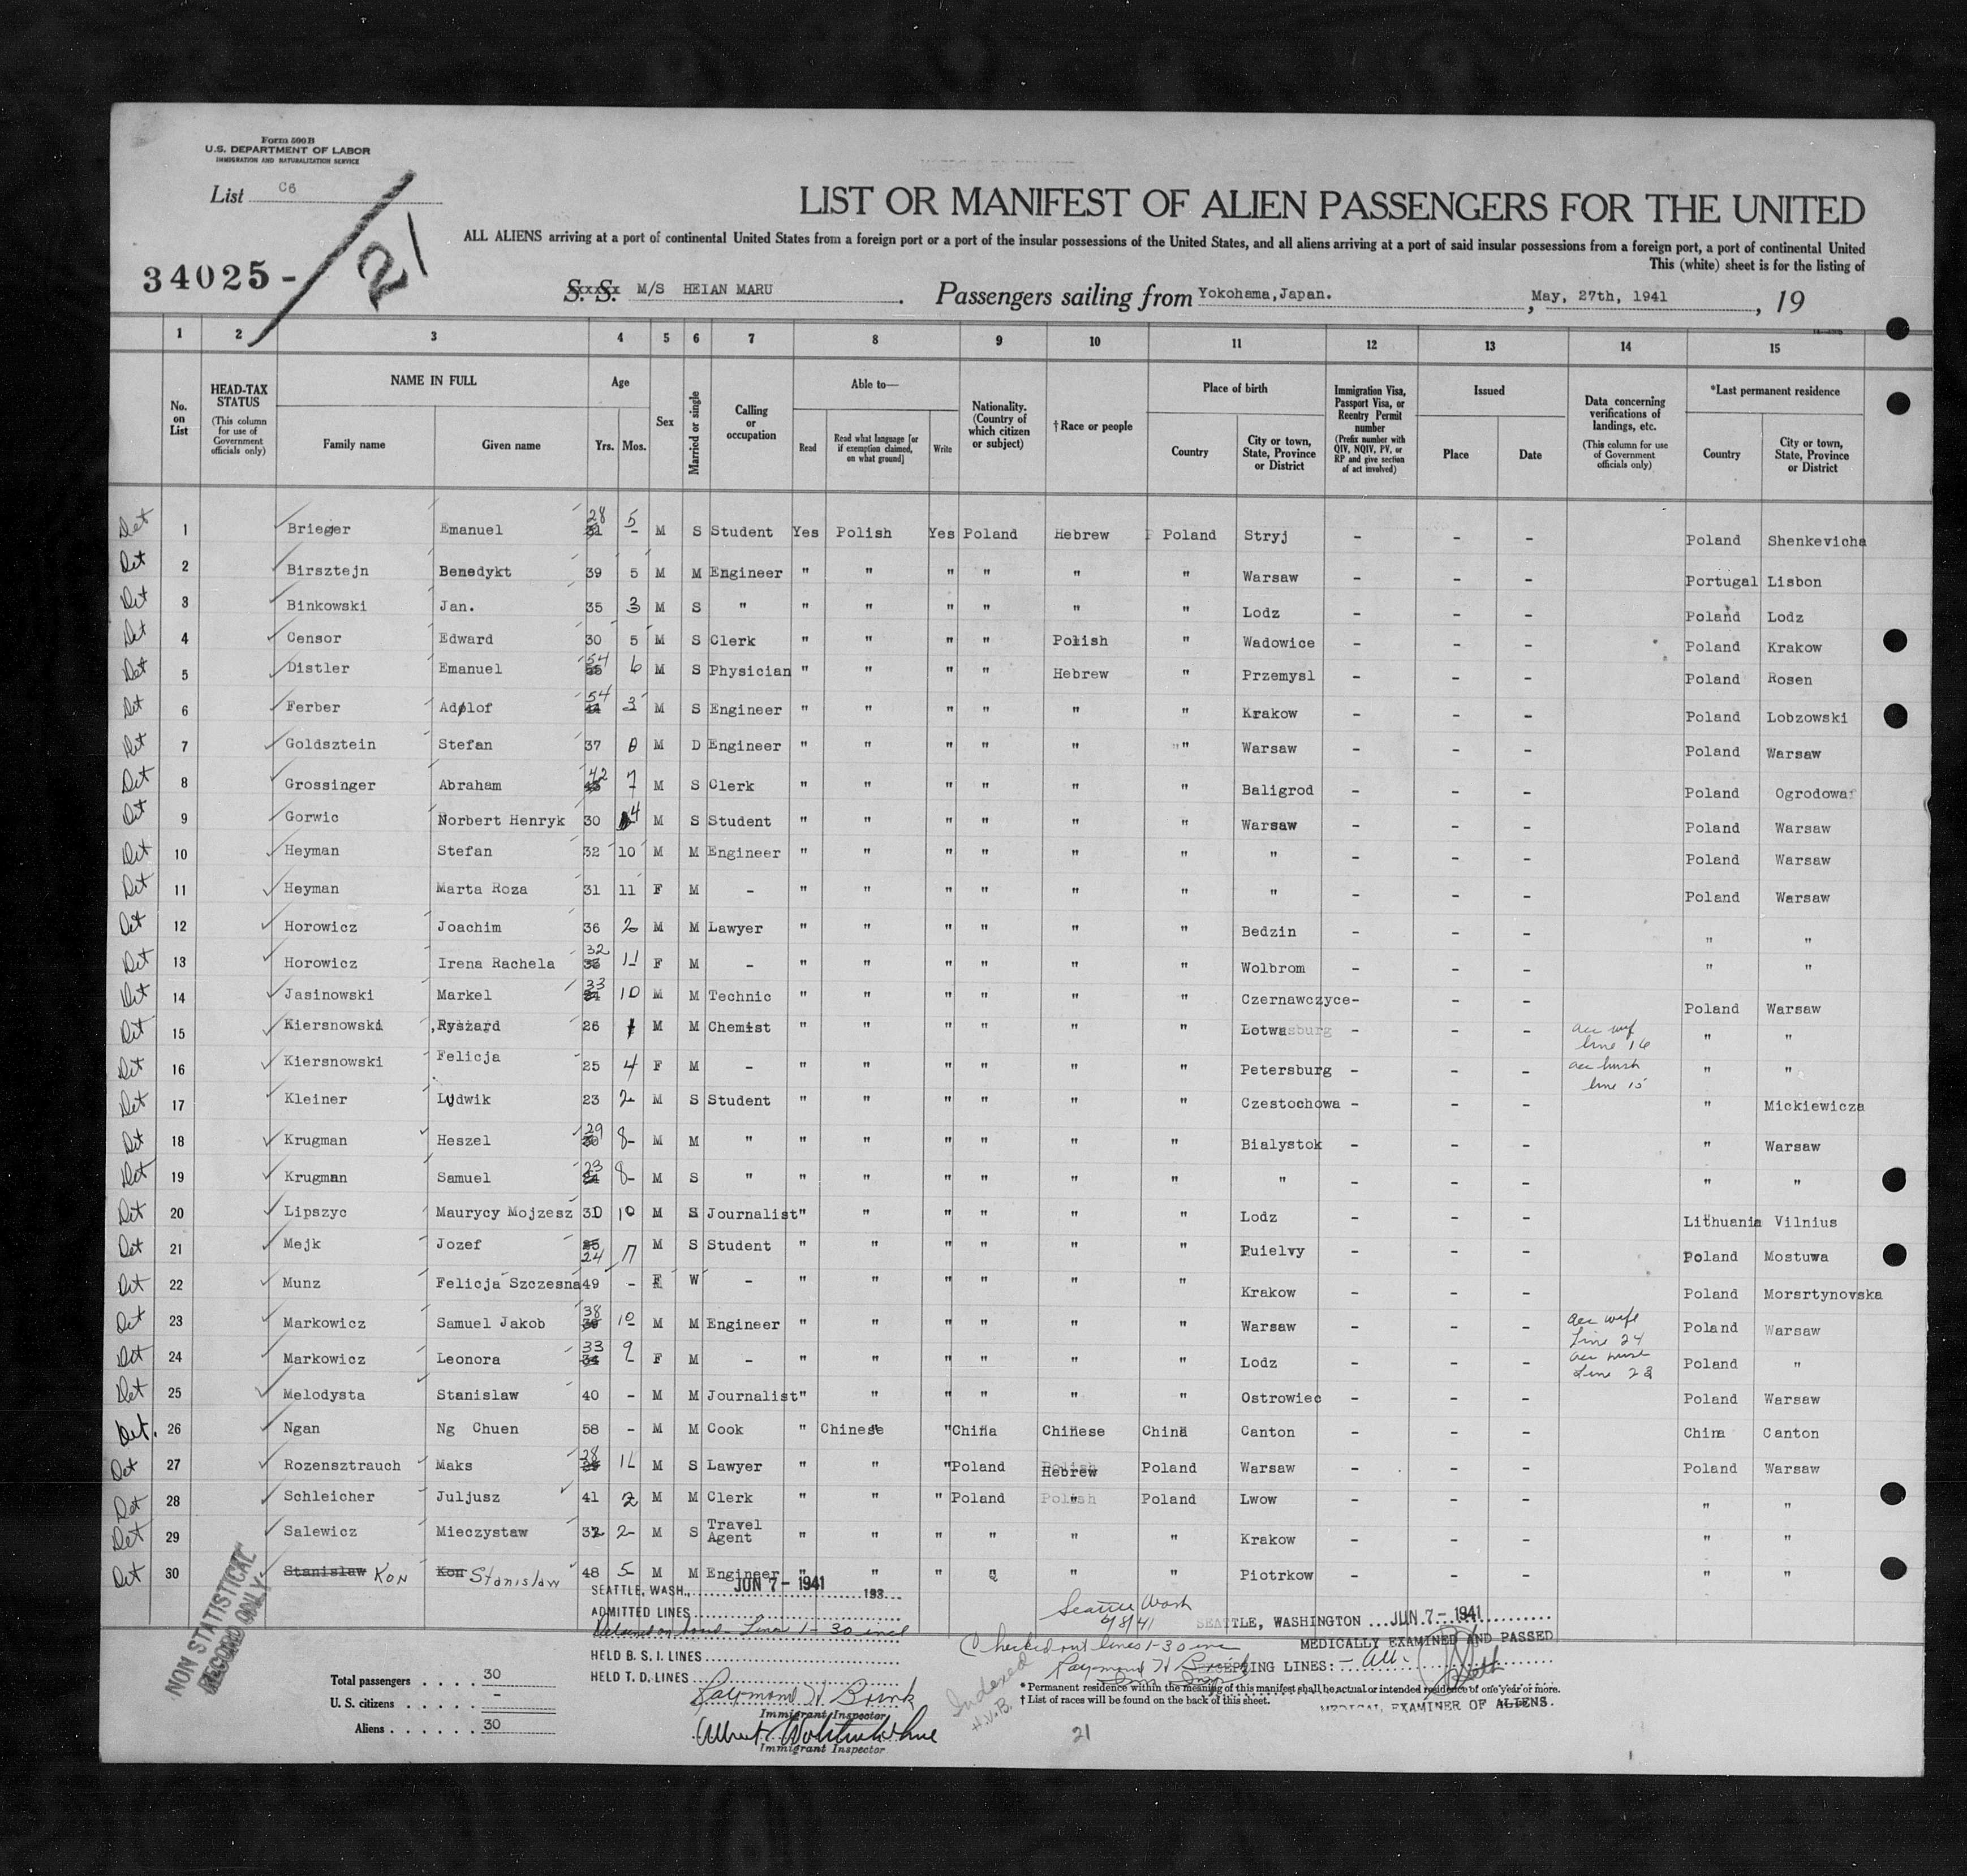 Form 500 B
U.S. DEPARTMENT OF LABOR
IMMIGRATION AND NATURALIZATION SERVICE
List C6
21
34025-
LIST OR MANIFEST OF ALIEN PASSENGERS FOR THE UNITED
ALL ALIENS arriving at a port of continental United States from a foreign port or a port of the insular possessions of the United States, and all aliens arriving at a port of said insular possessions from a foreign port, a port of continental United
This (white) sheet is for the listing of
S. S. M/S HEIAN MARU. Passengers sailing from Yokohama,Japan. , May, 27th, 1941 , 19
1 2 3 4 5 6 7 8 9 10 11 12 13 14 15
No. on List
HEAD-TAX STATUS (This column for use of Government officials only)
NAME IN FULL
Family name Given name
Age
Yrs. Mos.
Sex
Married or single
Calling or occupation
Able to—
Read
Read what language [or if exemption claimed, on what ground]
Write
Nationality. (Country of which citizen or subject)
†Race or people
Place of birth
Country
City or town, State, Province or District
Immigration Visa, Passport Visa, or Reentry Permit number (Prefix number with QIV, NQIV, PV, or RP and give section of act involved)
Issued
Place Date
Data concerning verifications of landings, etc. (This column for use of Government officials only)
*Last permanent residence
Country
City or town, State, Province or District
Det 1 Brieger Emanuel 28 5 M S Student Yes Polish Yes Poland Hebrew Poland Stryj - - - Poland Shenkevicha
Det 2 Birsztejn Benedykt 39 5 M M Engineer " " " " " " Warsaw - - - Portugal Lisbon
Det 3 Binkowski Jan. 35 3 M S " " " " " " " Lodz - - - Poland Lodz
Det 4 Censor Edward 30 5 M S Clerk " " " " Polish " Wadowice - - - Poland Krakow
Det 5 Distler Emanuel 54 6 M S Physician " " " " Hebrew " Przemysl - - - Poland Rosen
Det 6 Ferber Adolof 54 3 M S Engineer " " " " " " Krakow - - - Poland Lobzowski
Det 7 Goldsztein Stefan 37 M D Engineer " " " " " " Warsaw - - - Poland Warsaw
Det 8 Grossinger Abraham 42 7 M S Clerk " " " " " " Baligrod - - - Poland Ogrodowa
Det 9 Gorwic Norbert Henryk 30 4 M S Student " " " " " " Warsaw - - - Poland Warsaw
Det 10 Heyman Stefan 32 10 M M Engineer " " " " " " " - - - Poland Warsaw
Det 11 Heyman Marta Roza 31 11 F M - " " " " " " " - - - Poland Warsaw
Det 12 Horowicz Joachim 36 2 M M Lawyer " " " " " " Bedzin - - - " "
Det 13 Horowicz Irena Rachela 32 11 F M - " " " " " " Wolbrom - - - " "
Det 14 Jasinowski Markel 33 10 M M Technic " " " " " " Czernawczyce- - - Poland Warsaw
Det 15 Kiersnowski Ryszard 26 M M Chemist " " " " " " Lotwa - - - acc wif line 16 " "
Det 16 Kiersnowski Felicja 25 4 F M - " " " " " " Petersburg - - - acc hush line 15 " "
Det 17 Kleiner Ludwik 23 2 M S Student " " " " " " Czestochowa - - - " Mickiewicza
Det 18 Krugman Heszel 29 8 M M " " " " " " " Bialystok - - - " Warsaw
Det 19 Krugman Samuel 23 8 M S " " " " " " " " - - - " "
Det 20 Lipszyc Maurycy Mojzesz 30 10 M S Journalist " " " " " " Lodz - - - Lithuania Vilnius
Det 21 Mejk Jozef 24 M S Student " " " " " " Puielvy - - - Poland Mostuwa
Det 22 Munz Felicja Szczesna 49 - F W - " " " " " " Krakow - - - Poland Morsrtynovska
Det 23 Markowicz Samuel Jakob 38 10 M M Engineer " " " " " " Warsaw - - - acc wife Line 24 Poland Warsaw
Det 24 Markowicz Leonora 33 9 F M - " " " " " " Lodz - - - Line 23 Poland "
Det 25 Melodysta Stanislaw 40 - M M Journalist " " " " " " Ostrowiec - - - Poland Warsaw
Det. 26 Ngan Ng Chuen 58 - M M Cook " Chinese " China Chinese China Canton - - - China Canton
Det 27 Rozensztrauch Maks 28 11 M S Lawyer " " " Poland Hebrew Poland Warsaw - - - Poland Warsaw
Det 28 Schleicher Juljusz 41 2 M M Clerk " " " Poland " Poland Lwow - - - " "
Det 29 Salewicz Mieczystaw 32 2 M S Travel Agent " " " " " " Krakow - - - " "
Det 30 Stanislaw Kon Kon Stanislaw 48 5 M M Engineer " " " " " " Piotrkow - - - " "
NON STATISTICAL
RECORD ONLY.
SEATTLE, WASH., JUN 7- 1941 193
ADMITTED LINES
Detained on board - Lines 1-30 incl
HELD B. S. I. LINES
HELD T. D. LINES
Raymond W Brink
Immigrant Inspector
Albert
Immigrant Inspector
Seattle Wash
6/8/41
Checked out lines 1-30 inc
Raymond W Brink
Imm Insp
Indexed
H.V.B.
SEATTLE, WASHINGTON JUN 7- 1941
MEDICALLY EXAMINED AND PASSED
EXCEPTING LINES: - All-
MEDICAL EXAMINER OF ALIENS.
Total passengers 30
U. S. citizens -
Aliens 30
* Permanent residence within the meaning of this manifest shall be actual or intended residence of one year or more.
† List of races will be found on the back of this sheet.
21